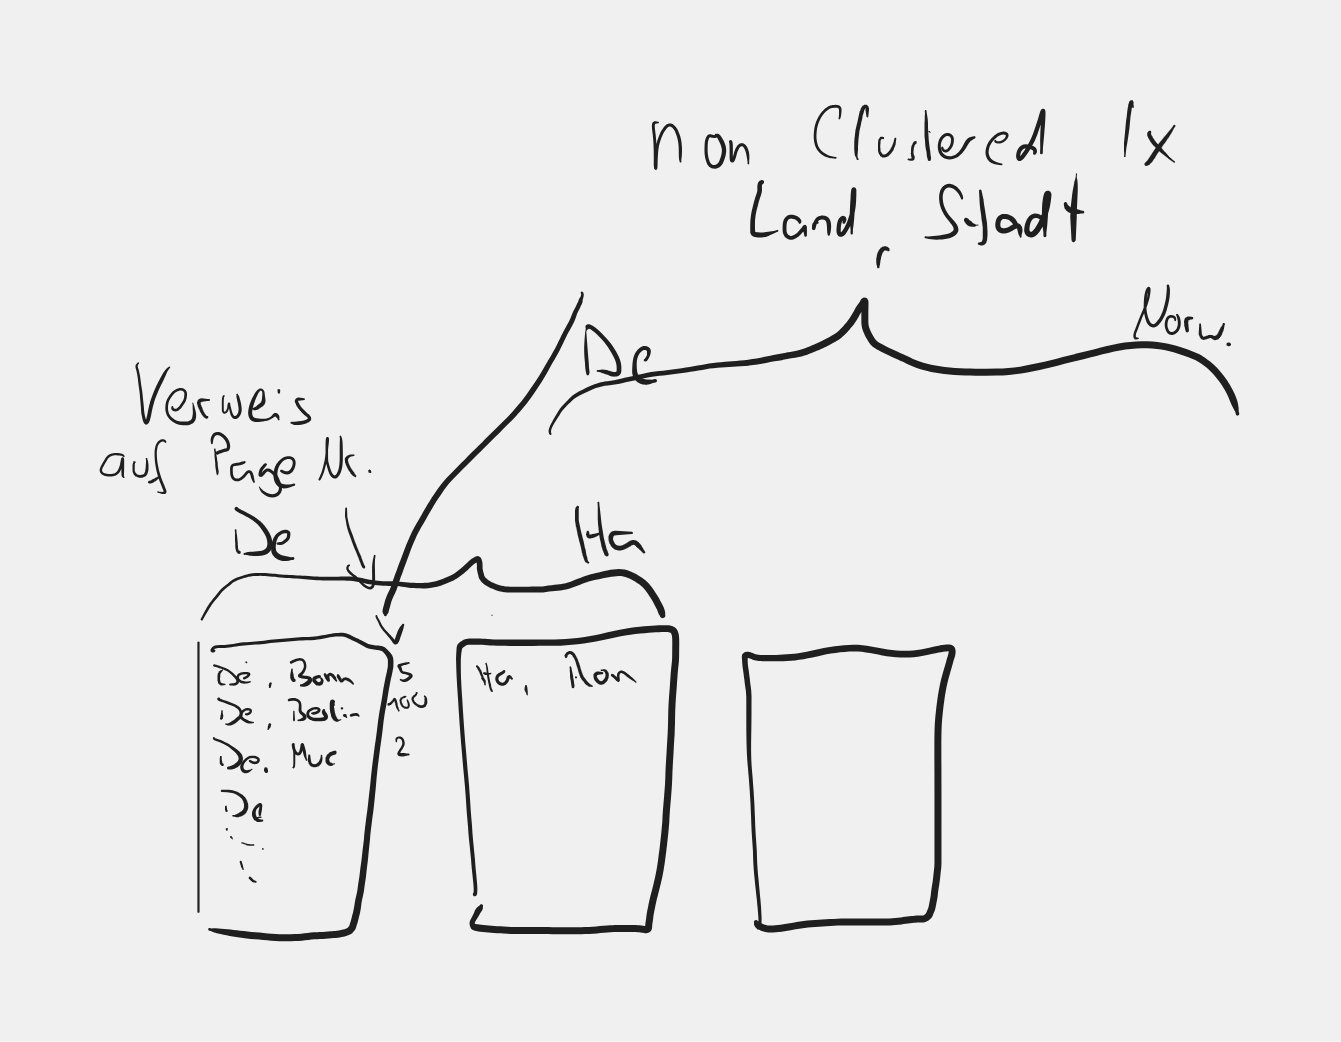 non Clustered Ix
Land, Stadt
De
Norw.
Verweis
auf Page Nr.
De
Ha
De, Bonn 5
De, Berlin 100
De, Muc 2
De
Ha, Rom